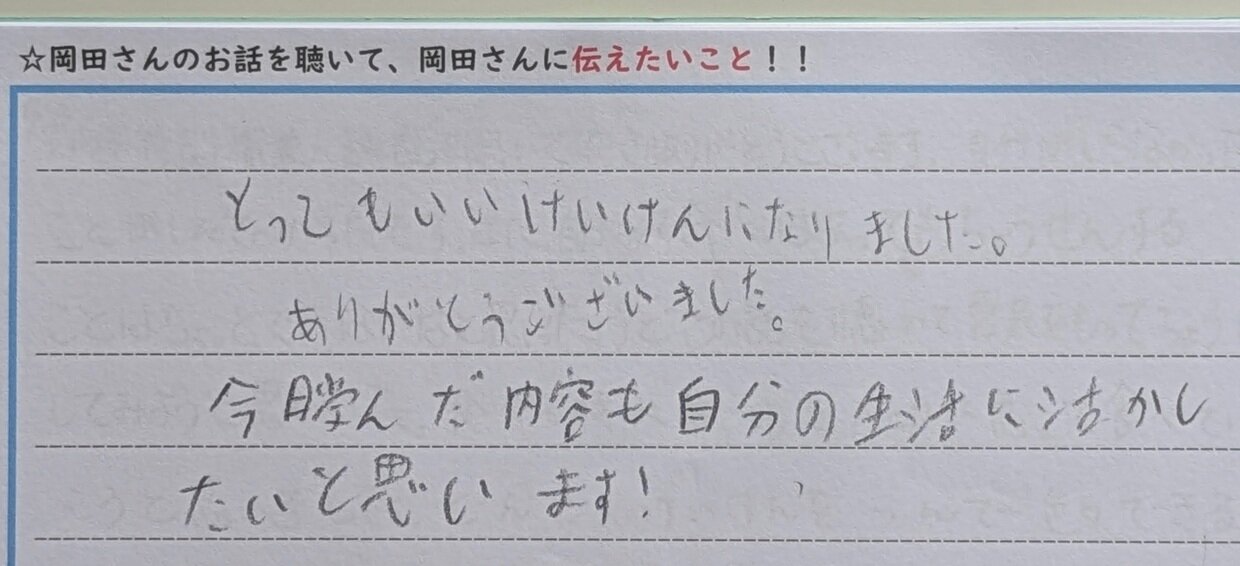 ☆岡田さんのお話を聴いて、岡田さんに伝えたいこと！！
とってもいいけいけんになりました。
ありがとうございました。
今日学んだ内容も自分の生活に活かし
たいと思います！